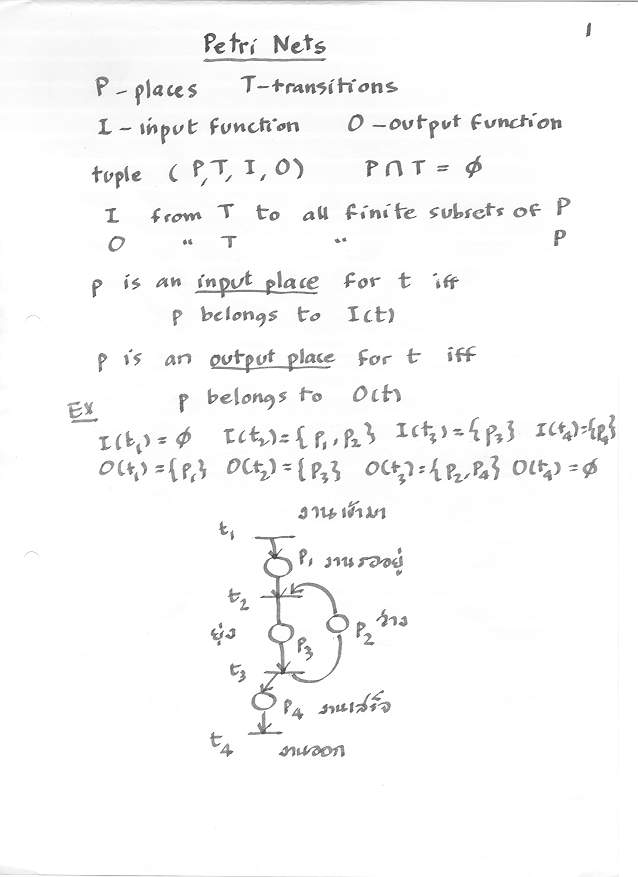 1
Petri Nets
P - places T - transitions
I - input function O - output function
tuple (P, T, I, O) P ∩ T = ∅
I from T to all finite subsets of P
O " T " P
p is an input place for t iff
p belongs to I(t)
p is an output place for t iff
p belongs to O(t)
Ex
I(t₁) = ∅ I(t₂) = {P₁, P₂} I(t₃) = {P₃} I(t₄) = {P₄}
O(t₁) = {P₁} O(t₂) = {P₃} O(t₃) = {P₂, P₄} O(t₄) = ∅
งานเข้ามา
t₁
P₁ งานรออยู่
t₂
ยุ่ง P₃ P₂ ว่าง
t₃
P₄ งานเสร็จ
t₄
งานออก